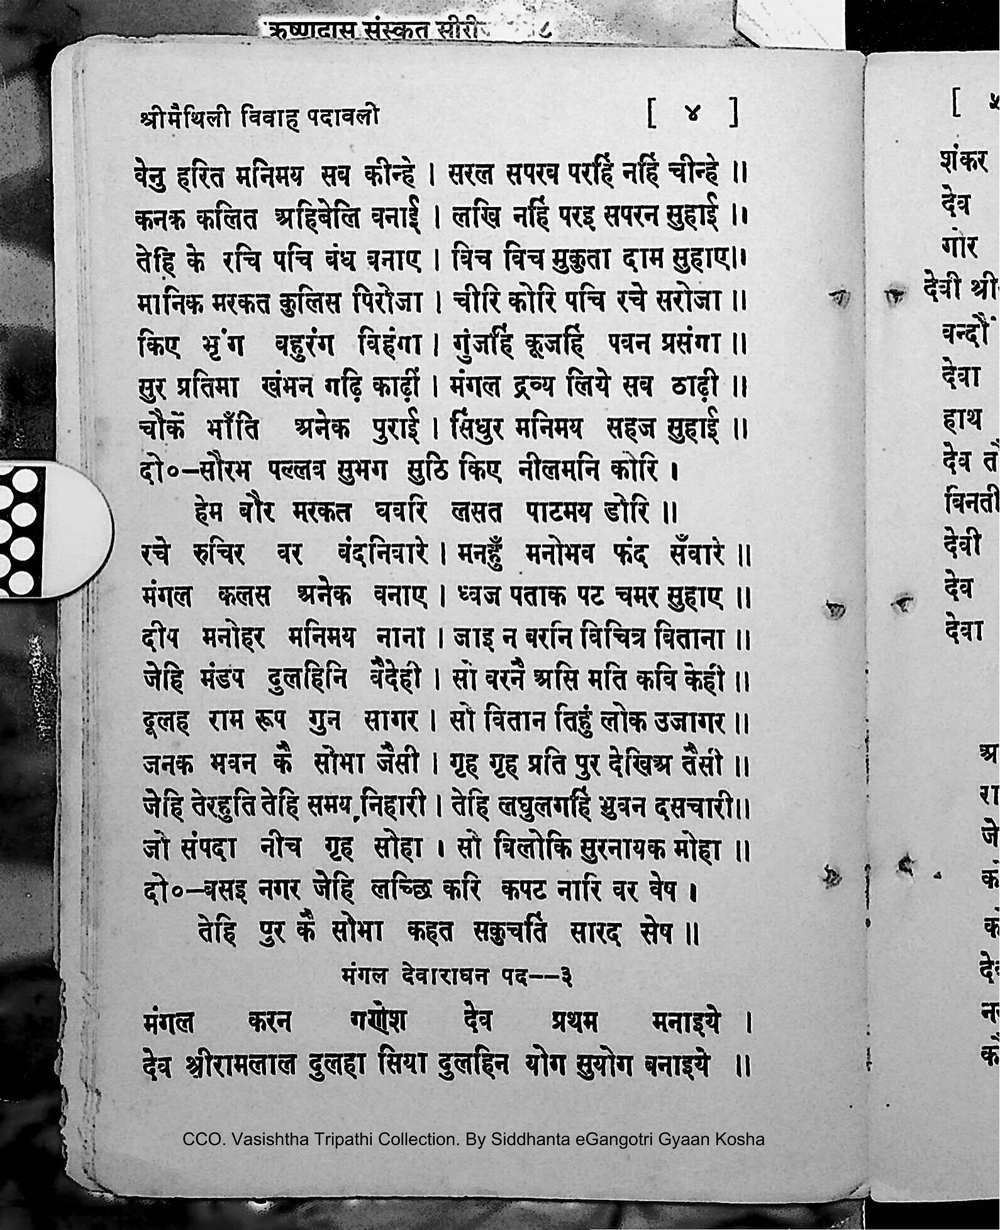 ऋष्णदास संस्कृत सीरी
श्रीमैथिली विवाह पदावली [ ४ ]
वेनु हरित मनिमय सब कीन्हे । सरल सपरब परहिं नहिं चीन्हे ॥
कनक कलित अहिबेलि बनाई । लखि नहिं परइ सपरन सुहाई ॥
तेहि के रचि पचि बंध बनाए । बिच बिच मुकुता दाम सुहाए॥
मानिक मरकत कुलिस पिरोजा । चीरि कोरि पचि रचे सरोजा ॥
किए भृंग बहुरंग विहंगा । गुंजहिं कूजहिं पवन प्रसंगा ॥
सुर प्रतिमा खंभन गढ़ि काढ़ीं । मंगल द्रव्य लिये सब ठाढ़ी ॥
चौकें भाँति अनेक पुराई । सिंधुर मनिमय सहज सुहाई ॥
दो०—सौरभ पल्लव सुभग सुठि किए नीलमनि कोरि ।
हेम बौर मरकत घवरि लसत पाटमय डोरि ॥
रचे रुचिर वर बंदनिवारे । मनहुँ मनोभव फंद सँवारे ॥
मंगल कलस अनेक बनाए । ध्वज पताक पट चमर सुहाए ॥
दीप मनोहर मनिमय नाना । जाइ न बरनि विचित्र विताना ॥
जेहि मंडप दुलहिनि वैदेही । सो बरनै असि मति कवि केही ॥
दूलह राम रूप गुन सागर । सो वितान तिहुं लोक उजागर ॥
जनक भवन कै सोभा जैसी । गृह गृह प्रति पुर देखिअ तैसी ॥
जेहि तेरहुति तेहि समय निहारी । तेहि लघुलगहिं भुवन दसचारी॥
जो संपदा नीच गृह सोहा । सो बिलोकि सुरनायक मोहा ॥
दो०—बसइ नगर जेहि लच्छि करि कपट नारि वर वेष ।
तेहि पुर कै सोभा कहत सकुचतिं सारद सेष ॥
मंगल देवाराधन पद--३
मंगल करन गणेश देव प्रथम मनाइये ।
देव श्रीरामलाल दुलहा सिया दुलहिन योग सुयोग बनाइये ॥
[ ५
शंकर
देव
गोर
देवी श्री
बन्दौं
देवा
हाथ
देव तौ
बिनती
देवी
देव
देवा
CCO. Vasishtha Tripathi Collection. By Siddhanta eGangotri Gyaan Kosha